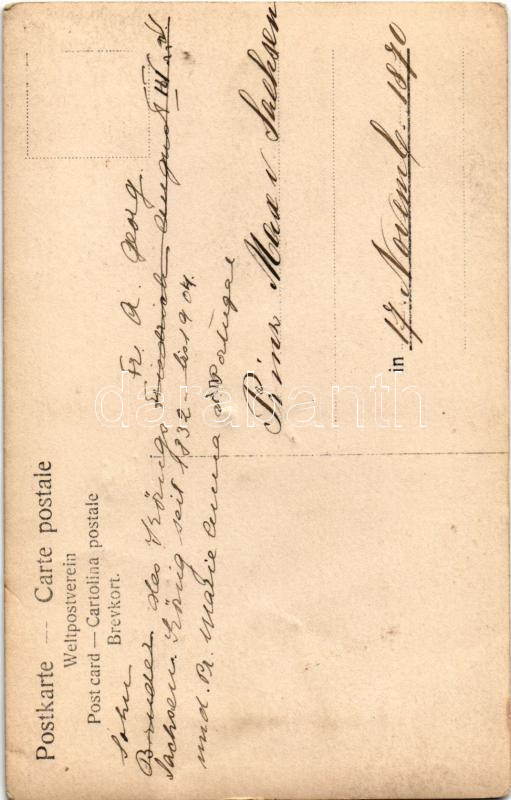 Postkarte — Carte postale
Weltpostverein
Post card — Cartolina postale
Brevkort.
Sohn Fr. A. Georg.
Bruder des Königs Friedrich August III v.
Sachsen. König seit 1832 - bis 1904.
und. Pr. Marie Anna v. Portugal
Prinz Max v Sachsen
in 17. Novemb. 1870
darabanth